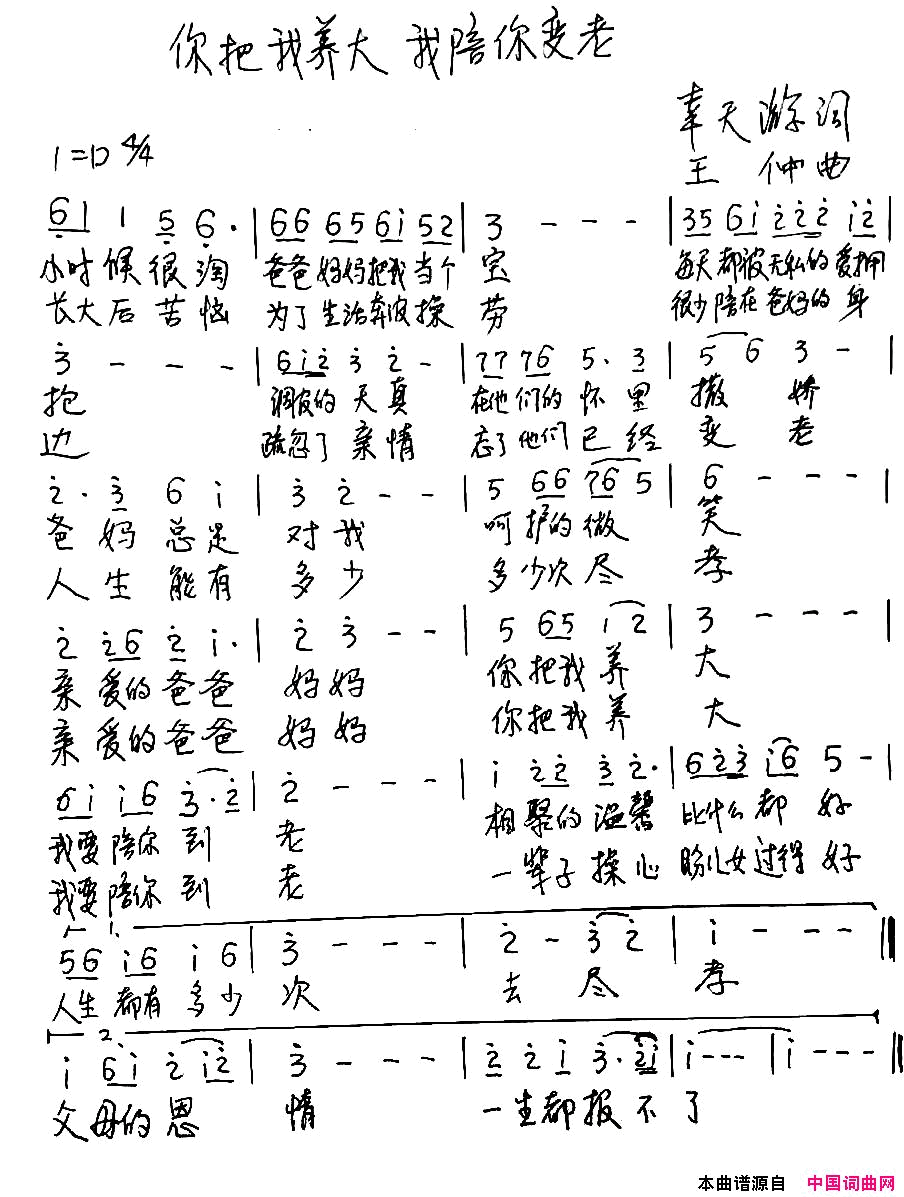 你把我养大 我陪你变老
幸天游词
1=D 4/4
王 仲曲
6 1 1 5 6 · | 66 65 6i 52 | 3 - - - | 35 6i 222 i2 |
小时候很淘 爸爸妈妈把我当个 宝 每天都被无私的爱拥
长大后苦恼 为了生活奔波操 劳 很少陪在爸妈的身
3 - - - | 6i2 3 2 - | 77 76 5· 3 | 5 6 3 - |
抱 调皮的天真 在他们的怀里 撒娇
边 疏忽了亲情 忘了他们已经 变老
2· 3 6 i | 3 2 - - | 5 66 76 5 | 6 - - - |
爸妈总是 对我 呵护的微 笑
人生能有 多少 多少次尽 孝
2 26 2 i· | 2 3 - - | 5 65 i2 | 3 - - - |
亲爱的爸爸 妈妈 你把我养 大
亲爱的爸爸 妈妈 你把我养 大
6i i6 3·2 | 2 - - - | i 22 3 2· | 623 i6 5 - |
我要陪你到 老 相聚的温馨 比什么都好
我要陪你到 老 一辈子操心 盼儿女过得好
1.
56 i6 i 6 | 3 - - - | 2 - 3 2 | i - - - ||
人生都有多少 次 去 尽 孝
2.
i 6i 2 i2 | 3 - - - | 2 2 i 3·2i | i--- | i --- ||
父母的恩 情 一生都报不了
本曲谱源自 中国词曲网